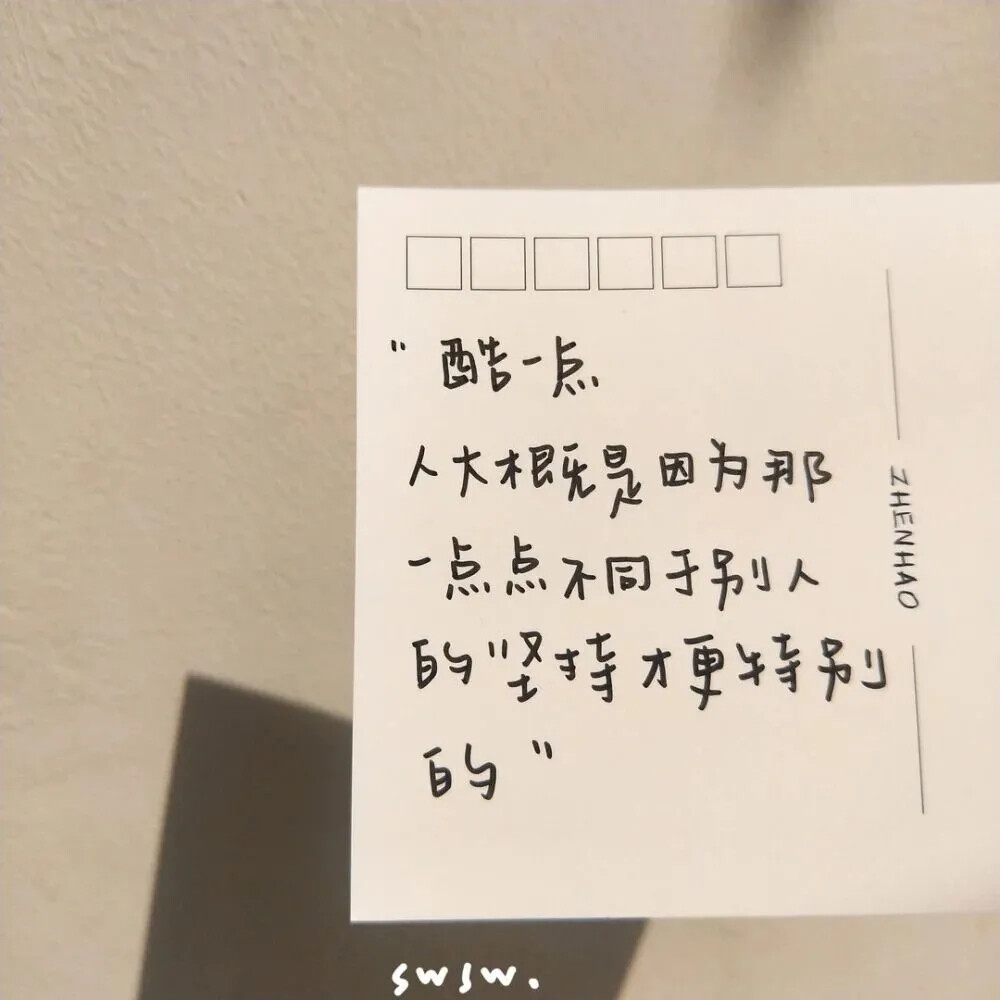 "酷一点
人大概既是因为那
一点点不同于别人
的坚持才更特别
的"
ZHENHAO
swsw.